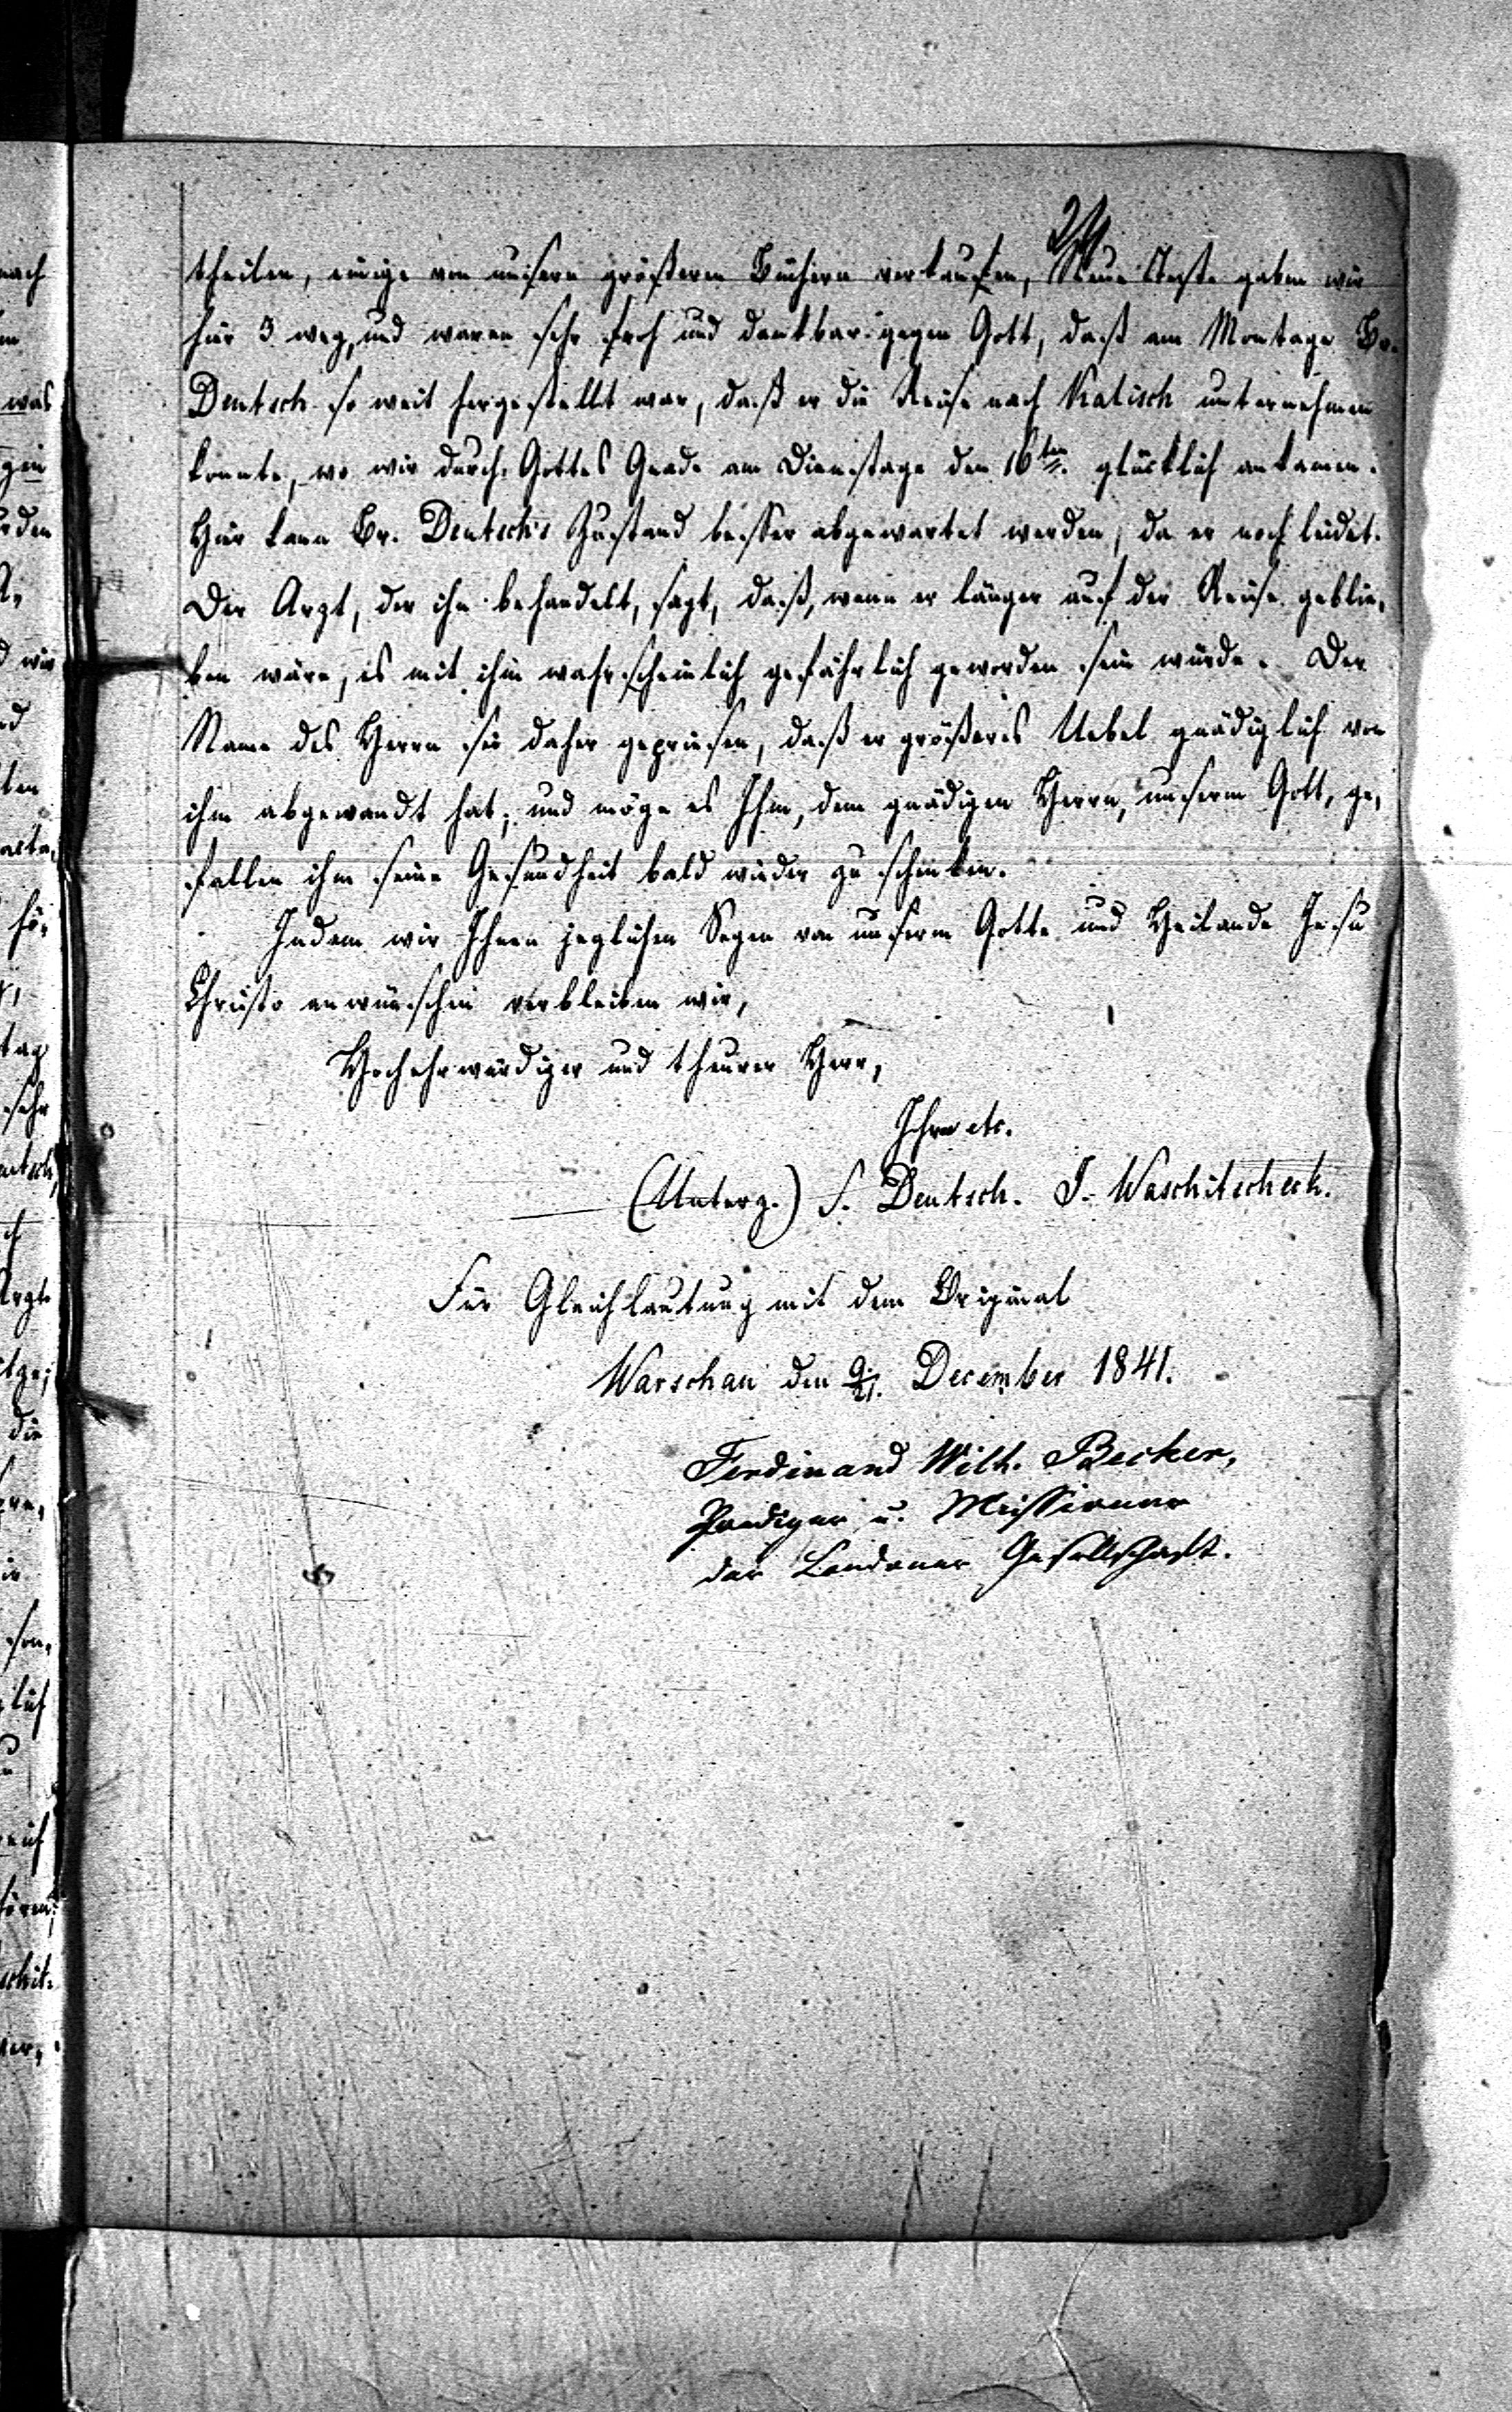 24
theilen, einige von unsern größeren Büchern verkaufen, Neue Teste gaben wir
hier 3 weg, und waren sehr froh und dankbar gegen Gott, daß am Montage Br.
Deutsch so weit hergestellt war, daß er die Reise nach Kalisch unternehmen
konnte, wo wir durch Gottes Gnade am Dienstage den 16ten glücklich ankamen.
Hier kann Br. Deutsch's Zustand besser abgewartet werden, da er noch leidet.
Der Arzt, der ihn behandelt, sagt, daß, wenn er länger auf der Reise geblie-
ben wäre, es mit ihm wahrscheinlich gefährlich geworden sein würde. Der
Name des Herrn sei daher gepriesen, daß er größeres Uebel gnädiglich von
ihm abgewandt hat; und möge es Ihm, dem gnädigen Herrn, unserm Gott, ge-
fallen ihm seine Gesundheit bald wieder zu schenken.
Indem wir Ihnen jeglichen Segen von unserm Gotte und Heilande Jesu
Christo anwünschen verbleiben wir,
Hochehrwürdiger und theurer Herr,
Ihre etc.
(Unterz.) S. Deutsch. J. Waschitscheck.
Für Gleichlautung mit dem Original
Warschau den 9/21. December 1841.
Ferdinand Wilh. Becker,
Prediger u. Missionar
der Londoner Gesellschaft.